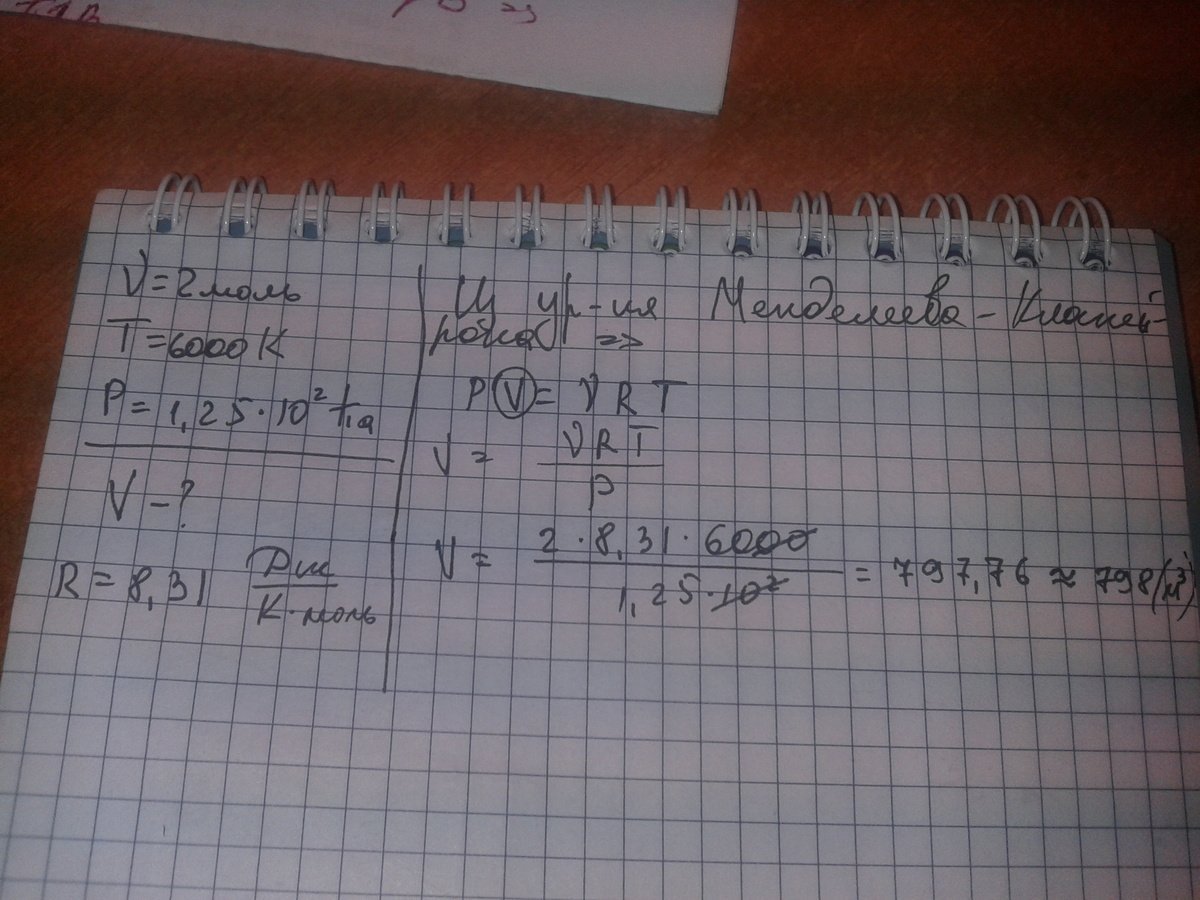 ν = 2 моль
T = 6000 К
P = 1,25 · 10² Па
V - ?
R = 8,31 Дж / К · моль
Из ур-ия Менделеева - Клапей-
рона =>
P V = ν R T
V = ν R T / P
V = 2 · 8,31 · 6000 / 1,25 · 10² = 797,76 ≈ 798 (м³)